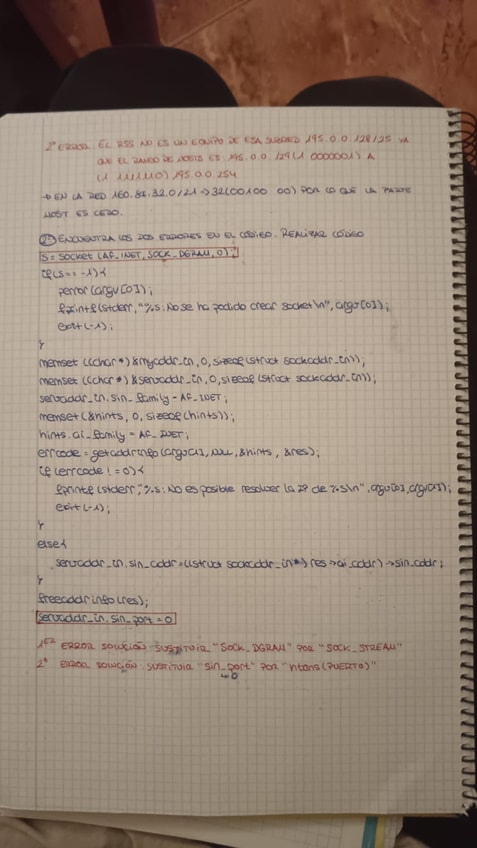 2º ERROR. EL RSS NO ES UN EQUIPO DE ESA SUBRED 195.0.0.128/25 YA
QUE EL RANGO DE HOSTS ES 195.0.0.129 (1 0000001) A
(1 1111110) 195.0.0.254
→ EN LA RED 160.82.32.0/21 → 32(00100 00) POR LO QUE LA PARTE
HOST ES CERO.
2º ENCUENTRA LOS DOS ERRORES EN EL CÓDIGO. REALIZAR CÓDIGO
S = SOCKET (AF_INET, SOCK_DGRAM, 0);
if(s== -1){
perror(argv[0]);
fprintf(stderr,"%s: No se ha podido crear socket\n", argv[0]);
exit(-1);
}
memset ((char *) &myaddr_in, 0, sizeof(struct sockaddr_in));
memset ((char *) &servaddr_in, 0, sizeof(struct sockaddr_in));
servaddr_in.sin_family = AF_INET;
memset(&hints, 0, sizeof(hints));
hints.ai_family = AF_INET;
errcode = getaddrinfo (argv[1], NULL, &hints, &res);
if (errcode != 0){
fprintf(stderr,"%s: No es posible resolver la IP de %s\n", argv[0], argv[1]);
exit(-1);
}
else{
servaddr_in.sin_addr=((struct sockaddr_in*) res->ai_addr)->sin_addr;
}
freeaddrinfo(res);
servaddr_in.sin_port = 0
1er ERROR SOLUCIÓN SUSTITUIR "SOCK_DGRAM" POR "SOCK_STREAM"
2º ERROR SOLUCIÓN SUSTITUIR "sin_port" POR "htons(PUERTO)"